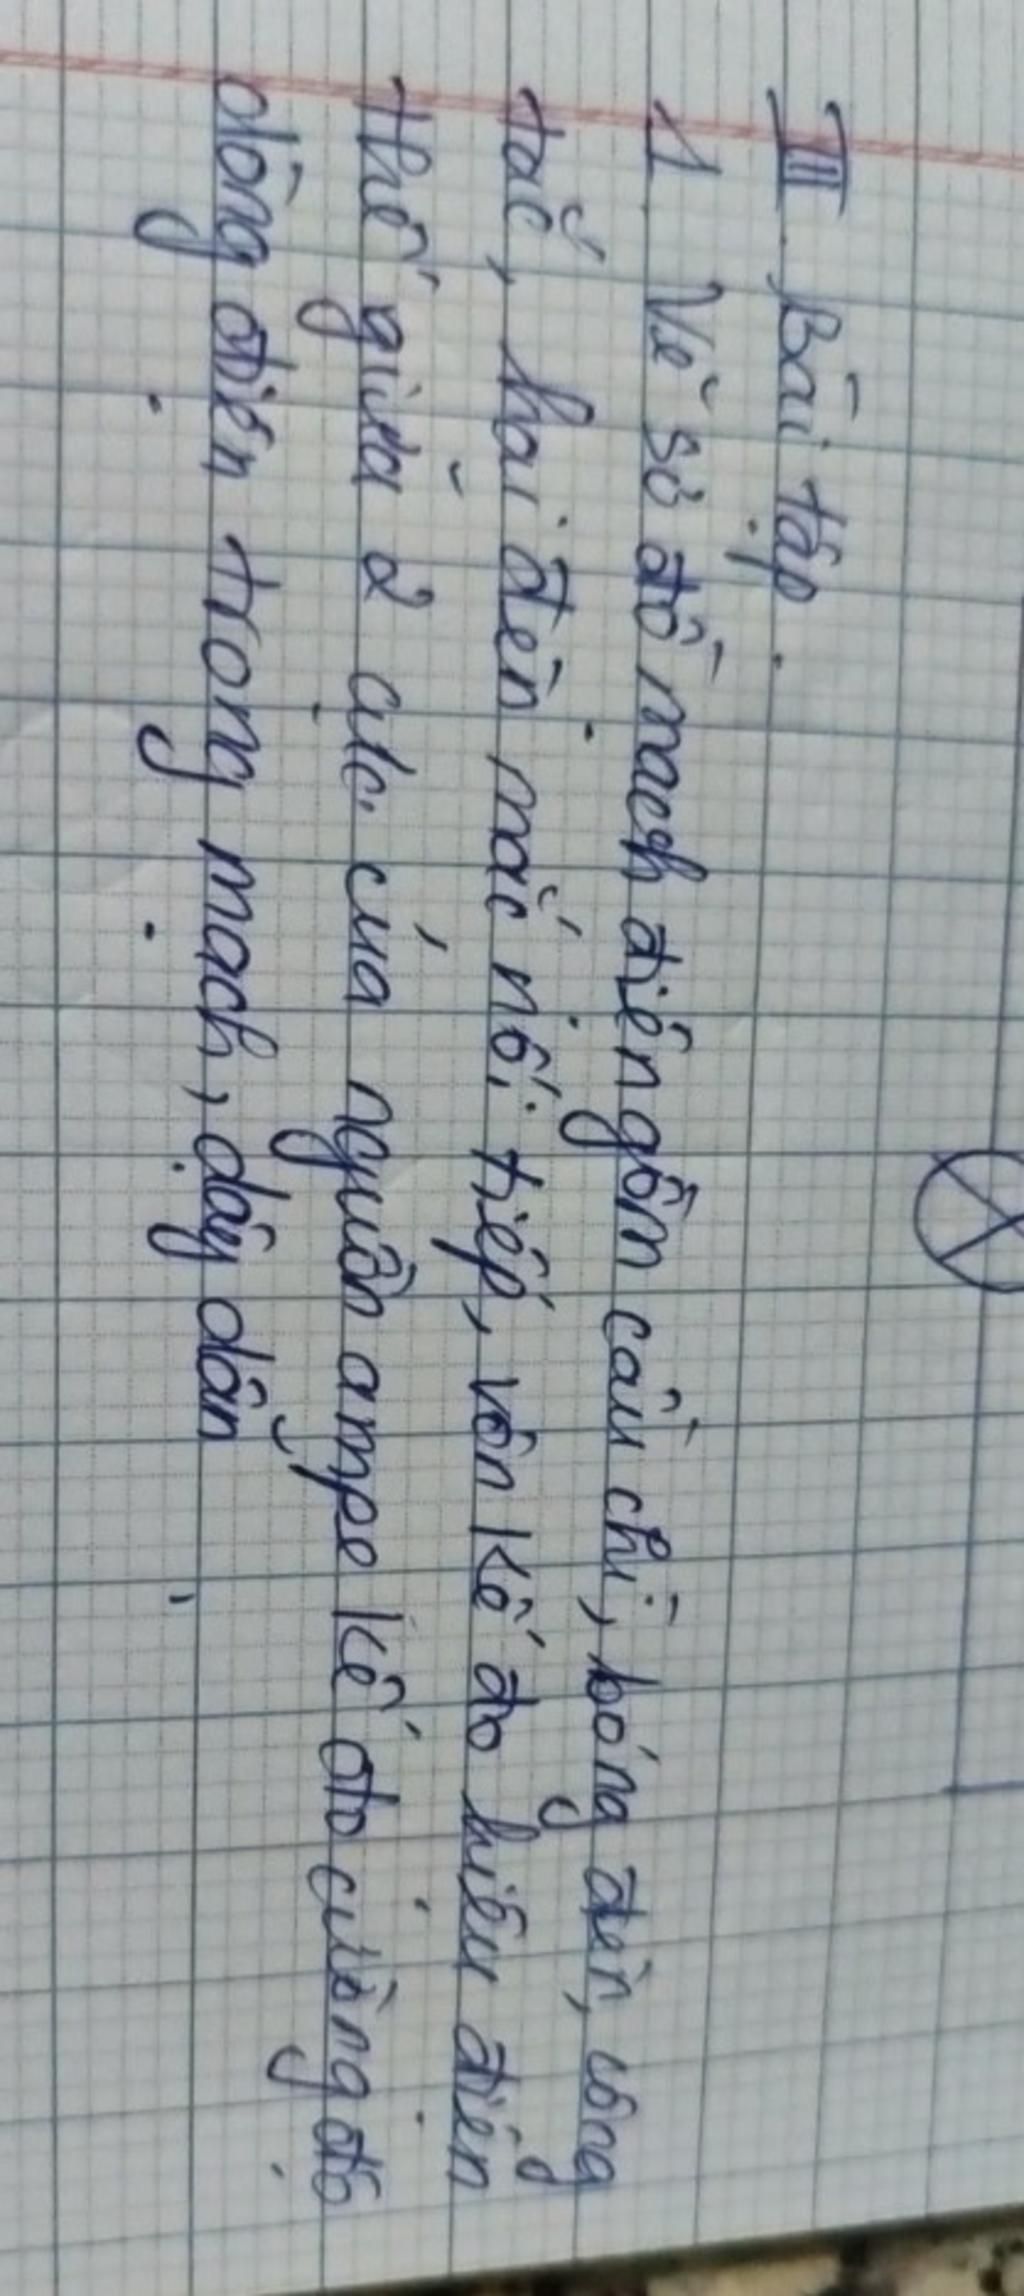 III. Bài tập.
1. Vẽ sơ đồ mạch điện gồm cầu chì, bóng đèn, công
tắc, hai đèn mắc nối tiếp, vôn kế đo hiệu điện
thế giữa 2 cực của nguồn ampe kế đo cường độ
dòng điện trong mạch, dây dẫn